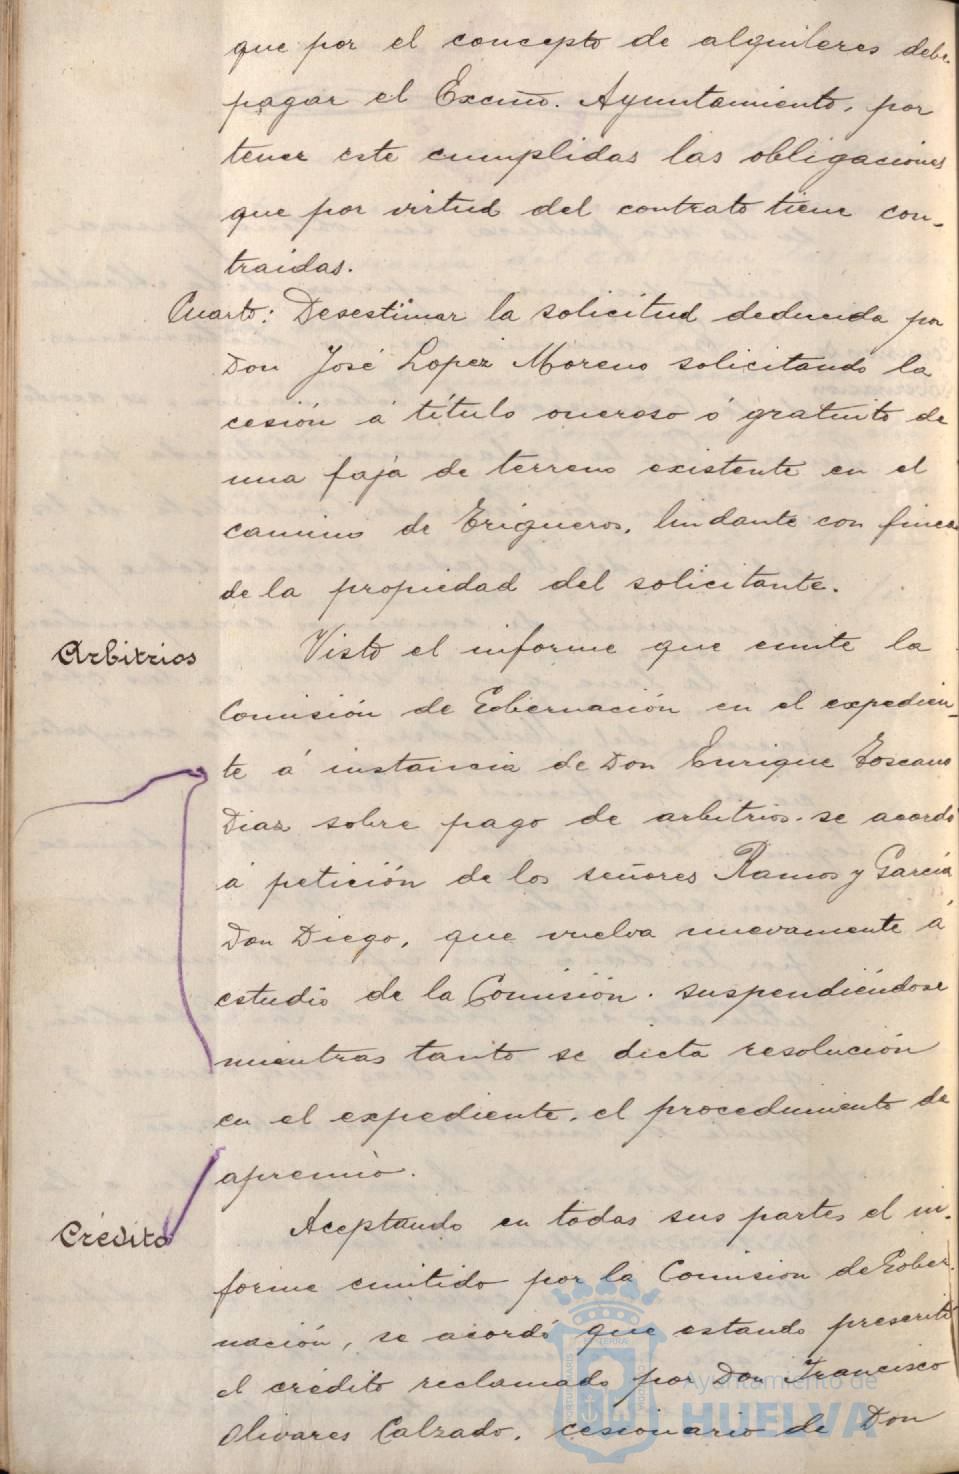 que por el concepto de alquileres debe
pagar el Excmo. Ayuntamiento, por
tener este cumplidas las obligaciones
que por virtud del contrato tiene con-
traidas.
Cuarto: Desestimar la solicitud deducida por
Don José Lopez Moreno solicitando la
cesión á título oneroso ó gratuito de
una faja de terreno existente en el
camino de Trigueros, lindante con finca
de la propiedad del solicitante.
Arbitrios
Visto el informe que emite la
Comisión de Gobernación en el expedien-
te á instancia de Don Enrique Toscano
Diaz sobre pago de arbitrios. se acordó
á petición de los señores Ramos y García
Don Diego, que vuelva nuevamente á
estudio de la Comisión. suspendiéndose
mientras tanto se dicta resolución
en el expediente, el procedimiento de
apremio.
Crédito
Aceptando en todas sus partes el in-
forme emitido por la Comision de Gober-
nación, se acordó que estando prescrito
el crédito reclamado por Don Francisco
Olivares Calzado, cesionario de Don
Ayuntamiento de
HUELVA